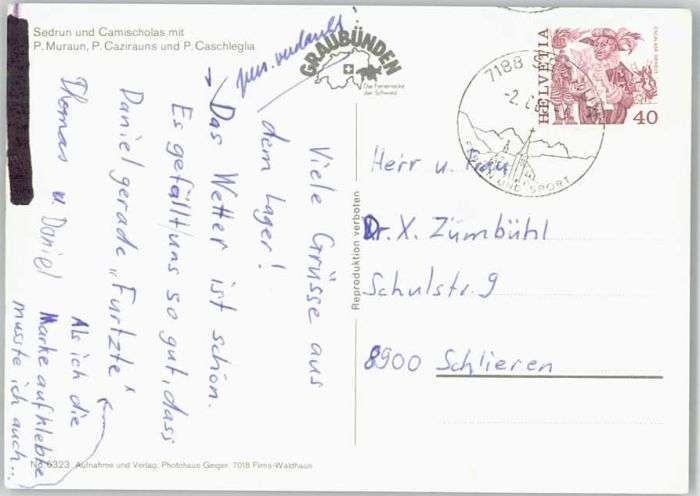 Sedrun und Camischolas mit
P. Muraun, P. Cazirauns und P. Caschleglia
GRAUBÜNDEN
Die Ferienecke
der Schweiz
7188
-2.
UND SPORT
HELVETIA
40
Viele Grüsse aus
dem Lager!
Das Wetter ist schön.
Es gefällt uns so gut, dass
Daniel gerade „Furtzte“
Thomas u. Daniel
Als ich die
Marke aufklebte
musste ich auch...
Herr u. Frau
Dr. X. Zümbühl
Schulstr. 9
8900 Schlieren
Reproduktion verboten
No. 6323 Aufnahme und Verlag: Photohaus Geiger 7018 Flims-Waldhaus